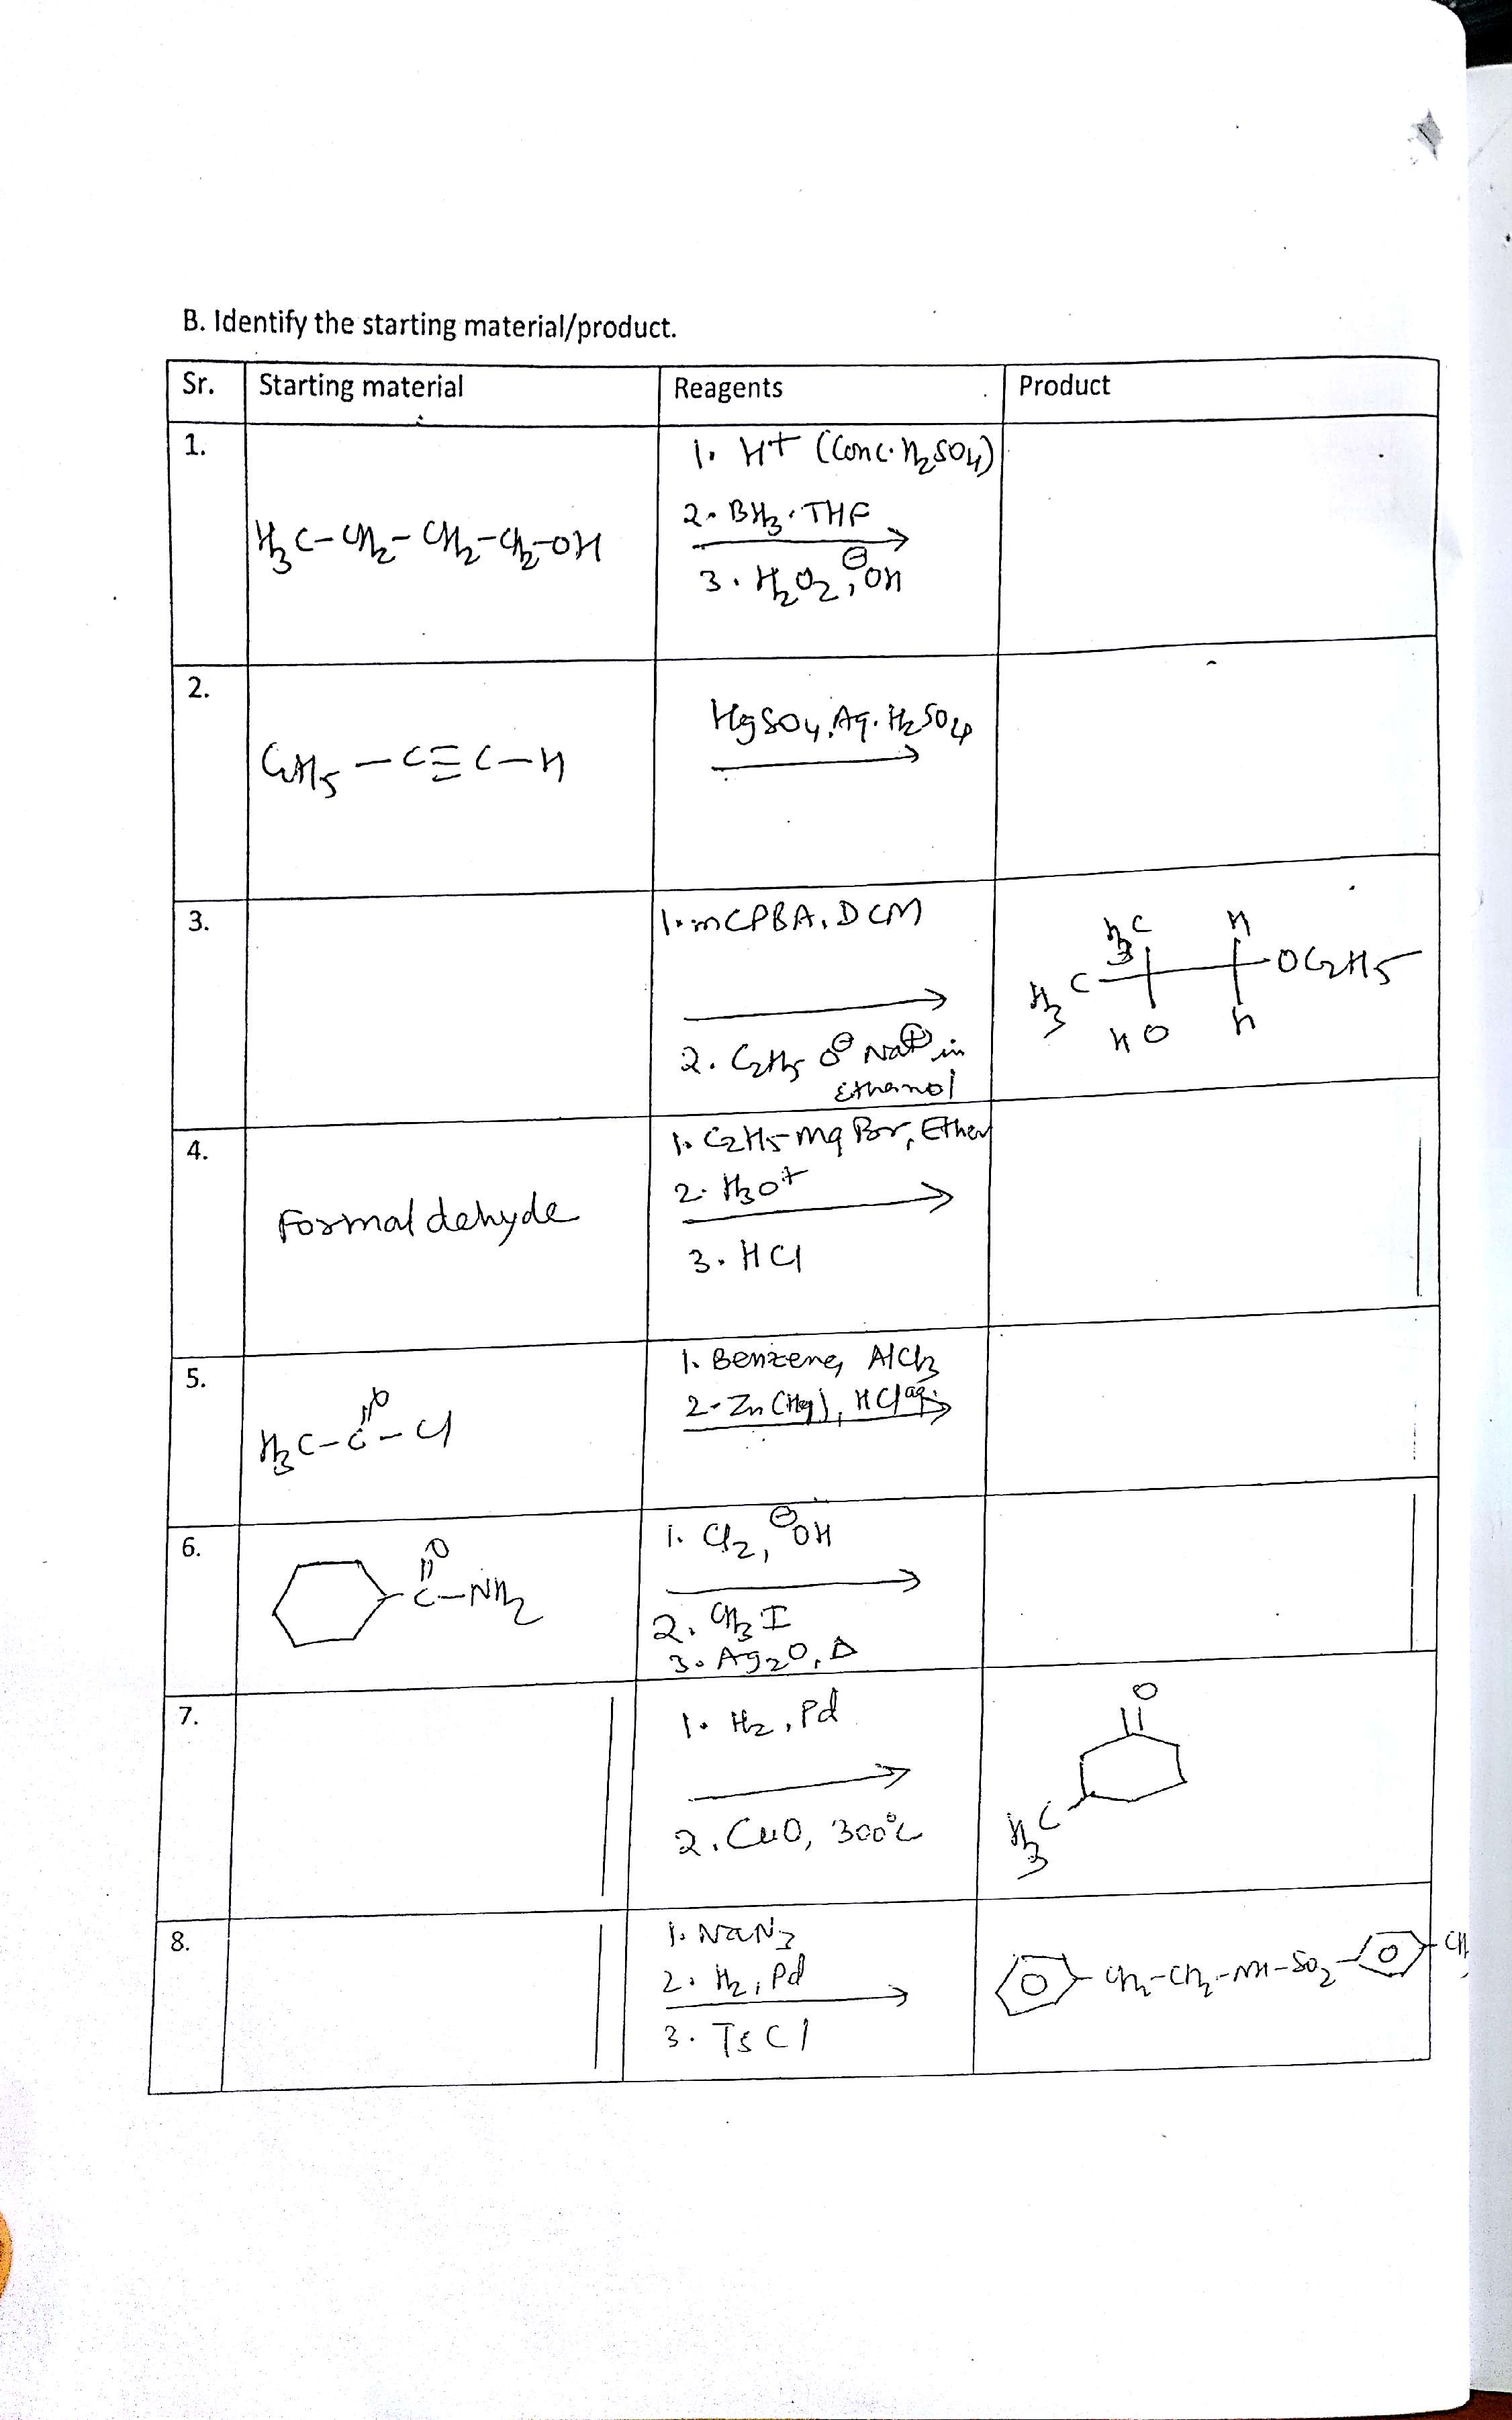 B. Identify the starting material/product.
Sr. Starting material Reagents Product
1. H3C-CH2-CH2-CH2-OH
1. H+ (Conc. H2SO4)
2. BH3. THF
3. H2O2, ⊖OH
2. C6H5-C≡C-H
HgSO4, Aq. H2SO4
3.
1. mCPBA, DCM
2. C2H5 O⊖ Na⊕ in
Ethanol
H3C H
H3C OC2H5
HO H
4. Formaldehyde
1. C2H5-Mg Br, Ether
2. H3O+
3. HCl
5. H3C-C-Cl
O
1. Benzene, AlCl3
2. Zn(Hg), HCl aq.
6. O
C-NH2
1. Cl2, ⊖OH
2. CH3 I
3. Ag2O, Δ
7.
1. H2, Pd
2. CuO, 300°C
O
H3C
8.
1. NaN3
2. H2, Pd
3. TsCl
CH2-CH2-NH-SO2- CH